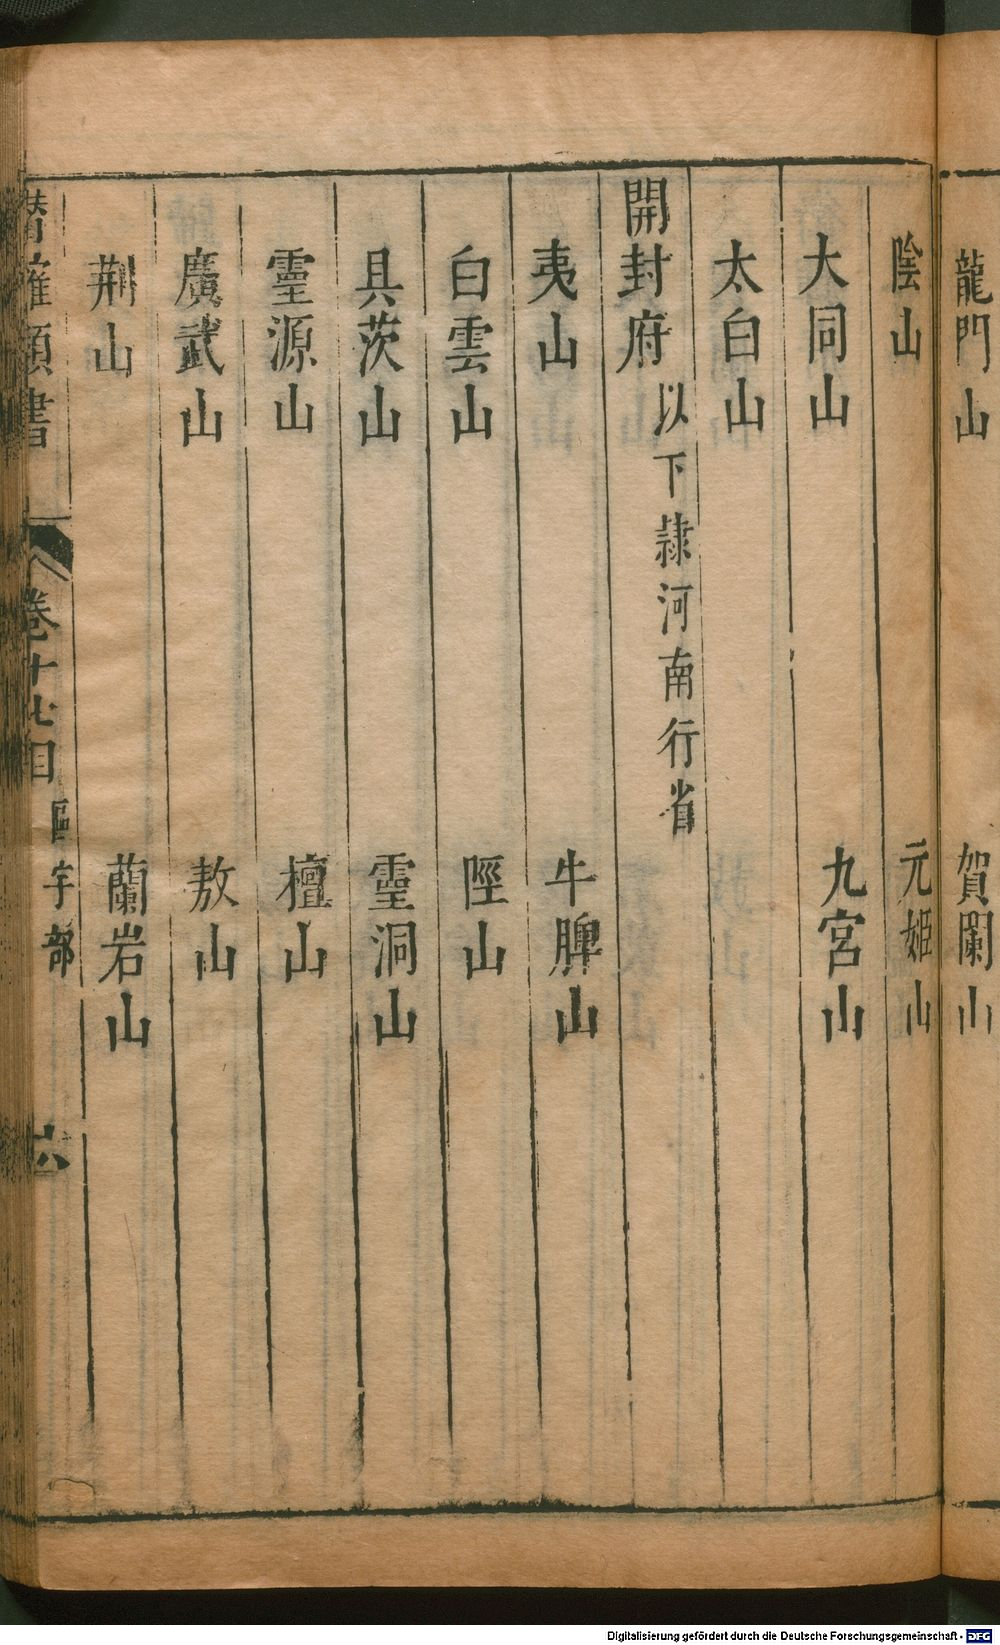 龍門山 賀闌山
陰山 元姬山
大同山 九宮山
太白山
開封府 以下隷河南行省
夷山 牛脾山
白雲山 陘山
具茨山 靈洞山
靈源山 檀山
廣武山 敖山
荆山 蘭岩山
潛確類書 卷十七目 區宇部 六
Digitalisierung gefördert durch die Deutsche Forschungsgemeinschaft - DFG